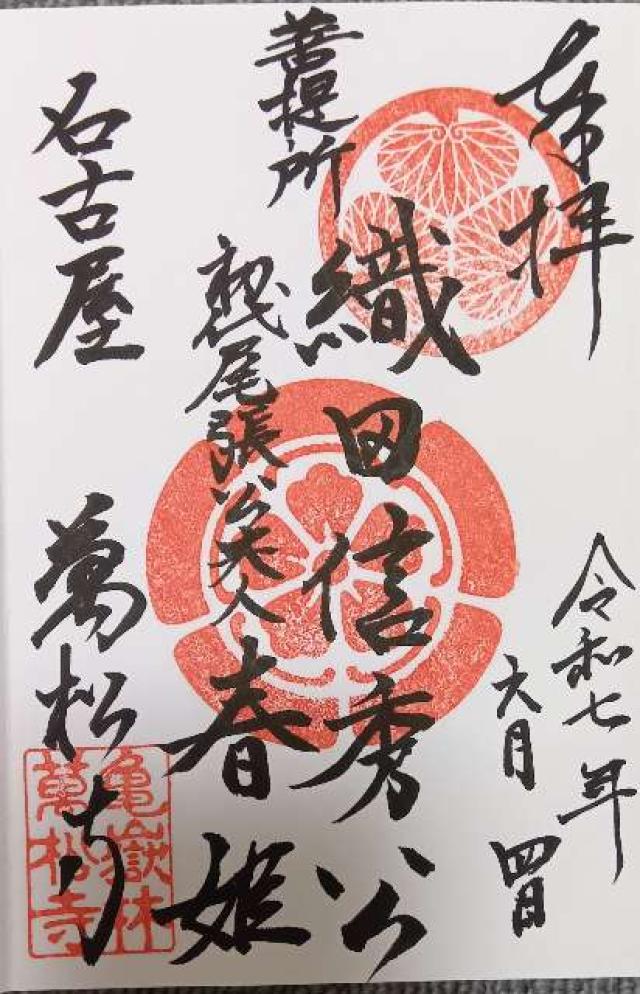 奉拝
令和七年
六月四日
菩提所
織田信秀公
初代尾張公夫人
春姫
名古屋
萬松寺
亀嶽林
萬松寺